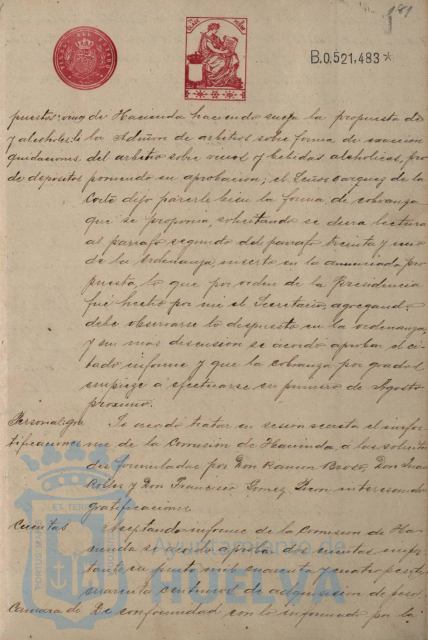 181
B.0.521,483*
puestos: vinos de Hacienda haciendo suya la propuesta de
y alcoholes: la Admón de arbitrios sobre forma de exacción
quidaciones del arbitrio sobre vinos y bebidas alcohólicas, pro
de depósitos poniendo su aprobación; el Señor Vazquez de la
Corte dijo parecerle bien la forma de cobranza
que se proponía, solicitando se diera lectura
al párrafo segundo del parrafo treinta y uno
de la Ordenanza, inserto en la anunciada pro
puesta, lo que por orden de la Presidencia
fue hecho por mi el Secretario, agregando
debe observarse lo dispuesto en la ordenanza,
y sin mas discusión se acordó aprobar el ci
tado informe y que la cobranza por grados
empiece a efectuarse en primero de Agosto
próximo.
Personal: gra Se acordó tratar en sesión secreta el infor
tificaciones me de la Comisión de Hacienda a las solicitu
des formuladas por Don Ramon Don
Robles y Don Francisco Gomez interesando
gratificaciones
Cuentas Aceptando informe de la Comision de Ha
cienda se acordó aprobar dos cuentas impor
tante en junto mil cuarenta y cuatro pesetas
cuarenta centimos de adquisicion de
Camara de De conformidad con lo informado por la
Ayuntamiento de
HUELVA